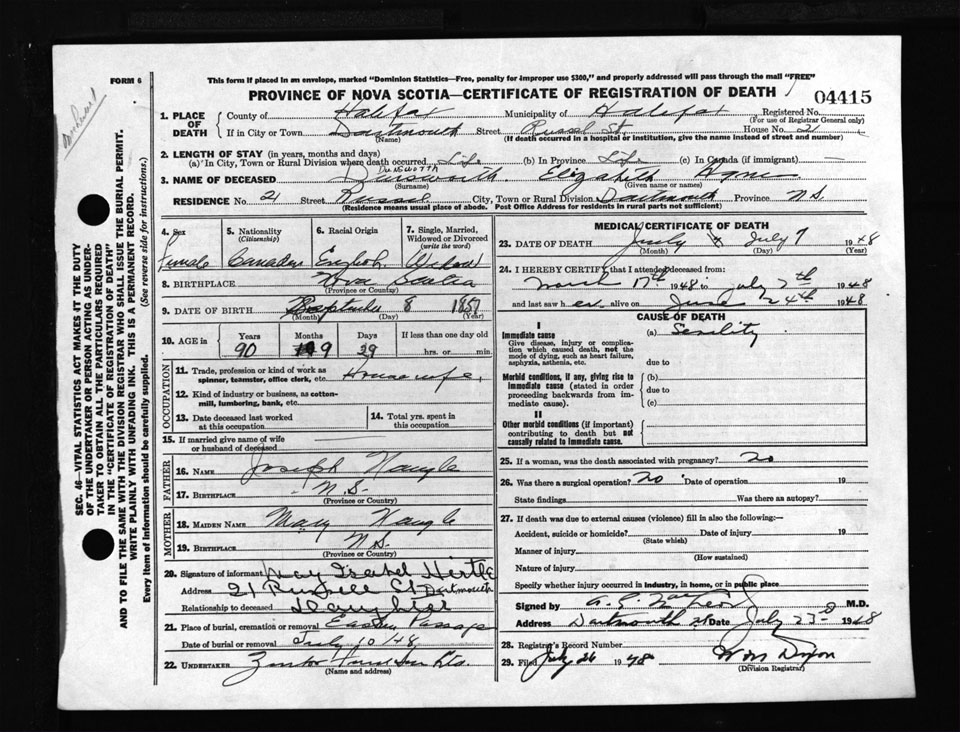 FORM 6
This form if placed in an envelope, marked "Dominion Statistics—Free, penalty for improper use $300," and properly addressed will pass through the mail "FREE"
PROVINCE OF NOVA SCOTIA—CERTIFICATE OF REGISTRATION OF DEATH
04415
1. PLACE OF DEATH
County of Halifax Municipality of Halifax Registered No.
(For use of Registrar General only)
If in City or Town Dartmouth Street Russel St. House No. 21
(Name) (If death occurred in a hospital or institution, give the name instead of street and number)
2. LENGTH OF STAY (in years, months and days)
(a) In City, Town or Rural Division where death occurred Life (b) In Province Life (c) In Canada (if immigrant) —
DUNSWORTH
3. NAME OF DECEASED Dunsworth Elizabeth Agnes
(Surname) (Given name or names)
RESIDENCE No. 21 Street Russel City, Town or Rural Division Dartmouth Province N.S.
(Residence means usual place of abode. Post Office Address for residents in rural parts not sufficient)
4. Sex
Female
5. Nationality
(Citizenship)
Canadian
6. Racial Origin
English
7. Single, Married, Widowed or Divorced
(write the word)
Widow
8. BIRTHPLACE Nova Scotia
(Province or Country)
9. DATE OF BIRTH September 8 1857
(Month) (Day) (Year)
10. AGE in
Years Months Days If less than one day old
90 9 29 hrs. or min.
OCCUPATION
11. Trade, profession or kind of work as spinner, teamster, office clerk, etc. Housewife.
12. Kind of industry or business, as cotton-mill, lumbering, bank, etc.
13. Date deceased last worked at this occupation
14. Total yrs. spent in this occupation
15. If married give name of wife or husband of deceased
FATHER
16. NAME Joseph Naugle
17. BIRTHPLACE N.S.
(Province or Country)
MOTHER
18. MAIDEN NAME Mary Naugle
19. BIRTHPLACE N.S.
(Province or Country)
20. Signature of informant May Isabel Hertle
Address 21 Russell St Dartmouth
Relationship to deceased Daughter
21. Place of burial, cremation or removal Eastern Passage
Date of burial or removal July 10/48
22. UNDERTAKER
(Name and address)
MEDICAL CERTIFICATE OF DEATH
23. DATE OF DEATH July 7 1948
(Month) (Day) (Year)
24. I HEREBY CERTIFY that I attended deceased from:
March 17th 1948 to July 7th 1948
and last saw her alive on June 24th 1948
CAUSE OF DEATH
I
Immediate cause
Give disease, injury or complication which caused death, not the mode of dying, such as heart failure, asphyxia, asthenia, etc.
(a) Senility
due to
Morbid conditions, if any, giving rise to immediate cause (stated in order proceeding backwards from immediate cause).
(b)
due to
(c)
II
Other morbid conditions (if important) contributing to death but not causally related to immediate cause.
25. If a woman, was the death associated with pregnancy? no
26. Was there a surgical operation? no Date of operation 19
State findings Was there an autopsy?
27. If death was due to external causes (violence) fill in also the following:—
Accident, suicide or homicide? Date of injury 19
(State which)
Manner of injury
(How sustained)
Nature of injury
Specify whether injury occurred in industry, in home, or in public place
Signed by M.D.
Address Dartmouth NS Date July 23rd 1948
28. Registrar's Record Number
29. Filed July 26 1948 W M Dixon
(Division Registrar)
SEC. 46—VITAL STATISTICS ACT MAKES IT THE DUTY
OF THE UNDERTAKER OR PERSON ACTING AS UNDER-
TAKER TO OBTAIN ALL THE PARTICULARS REQUIRED
IN THE "CERTIFICATE OF REGISTRATION OF DEATH"
AND TO FILE THE SAME WITH THE DIVISION REGISTRAR WHO SHALL ISSUE THE BURIAL PERMIT.
WRITE PLAINLY WITH UNFADING INK. THIS IS A PERMANENT RECORD.
Every item of information should be carefully supplied. (See reverse side for instructions.)